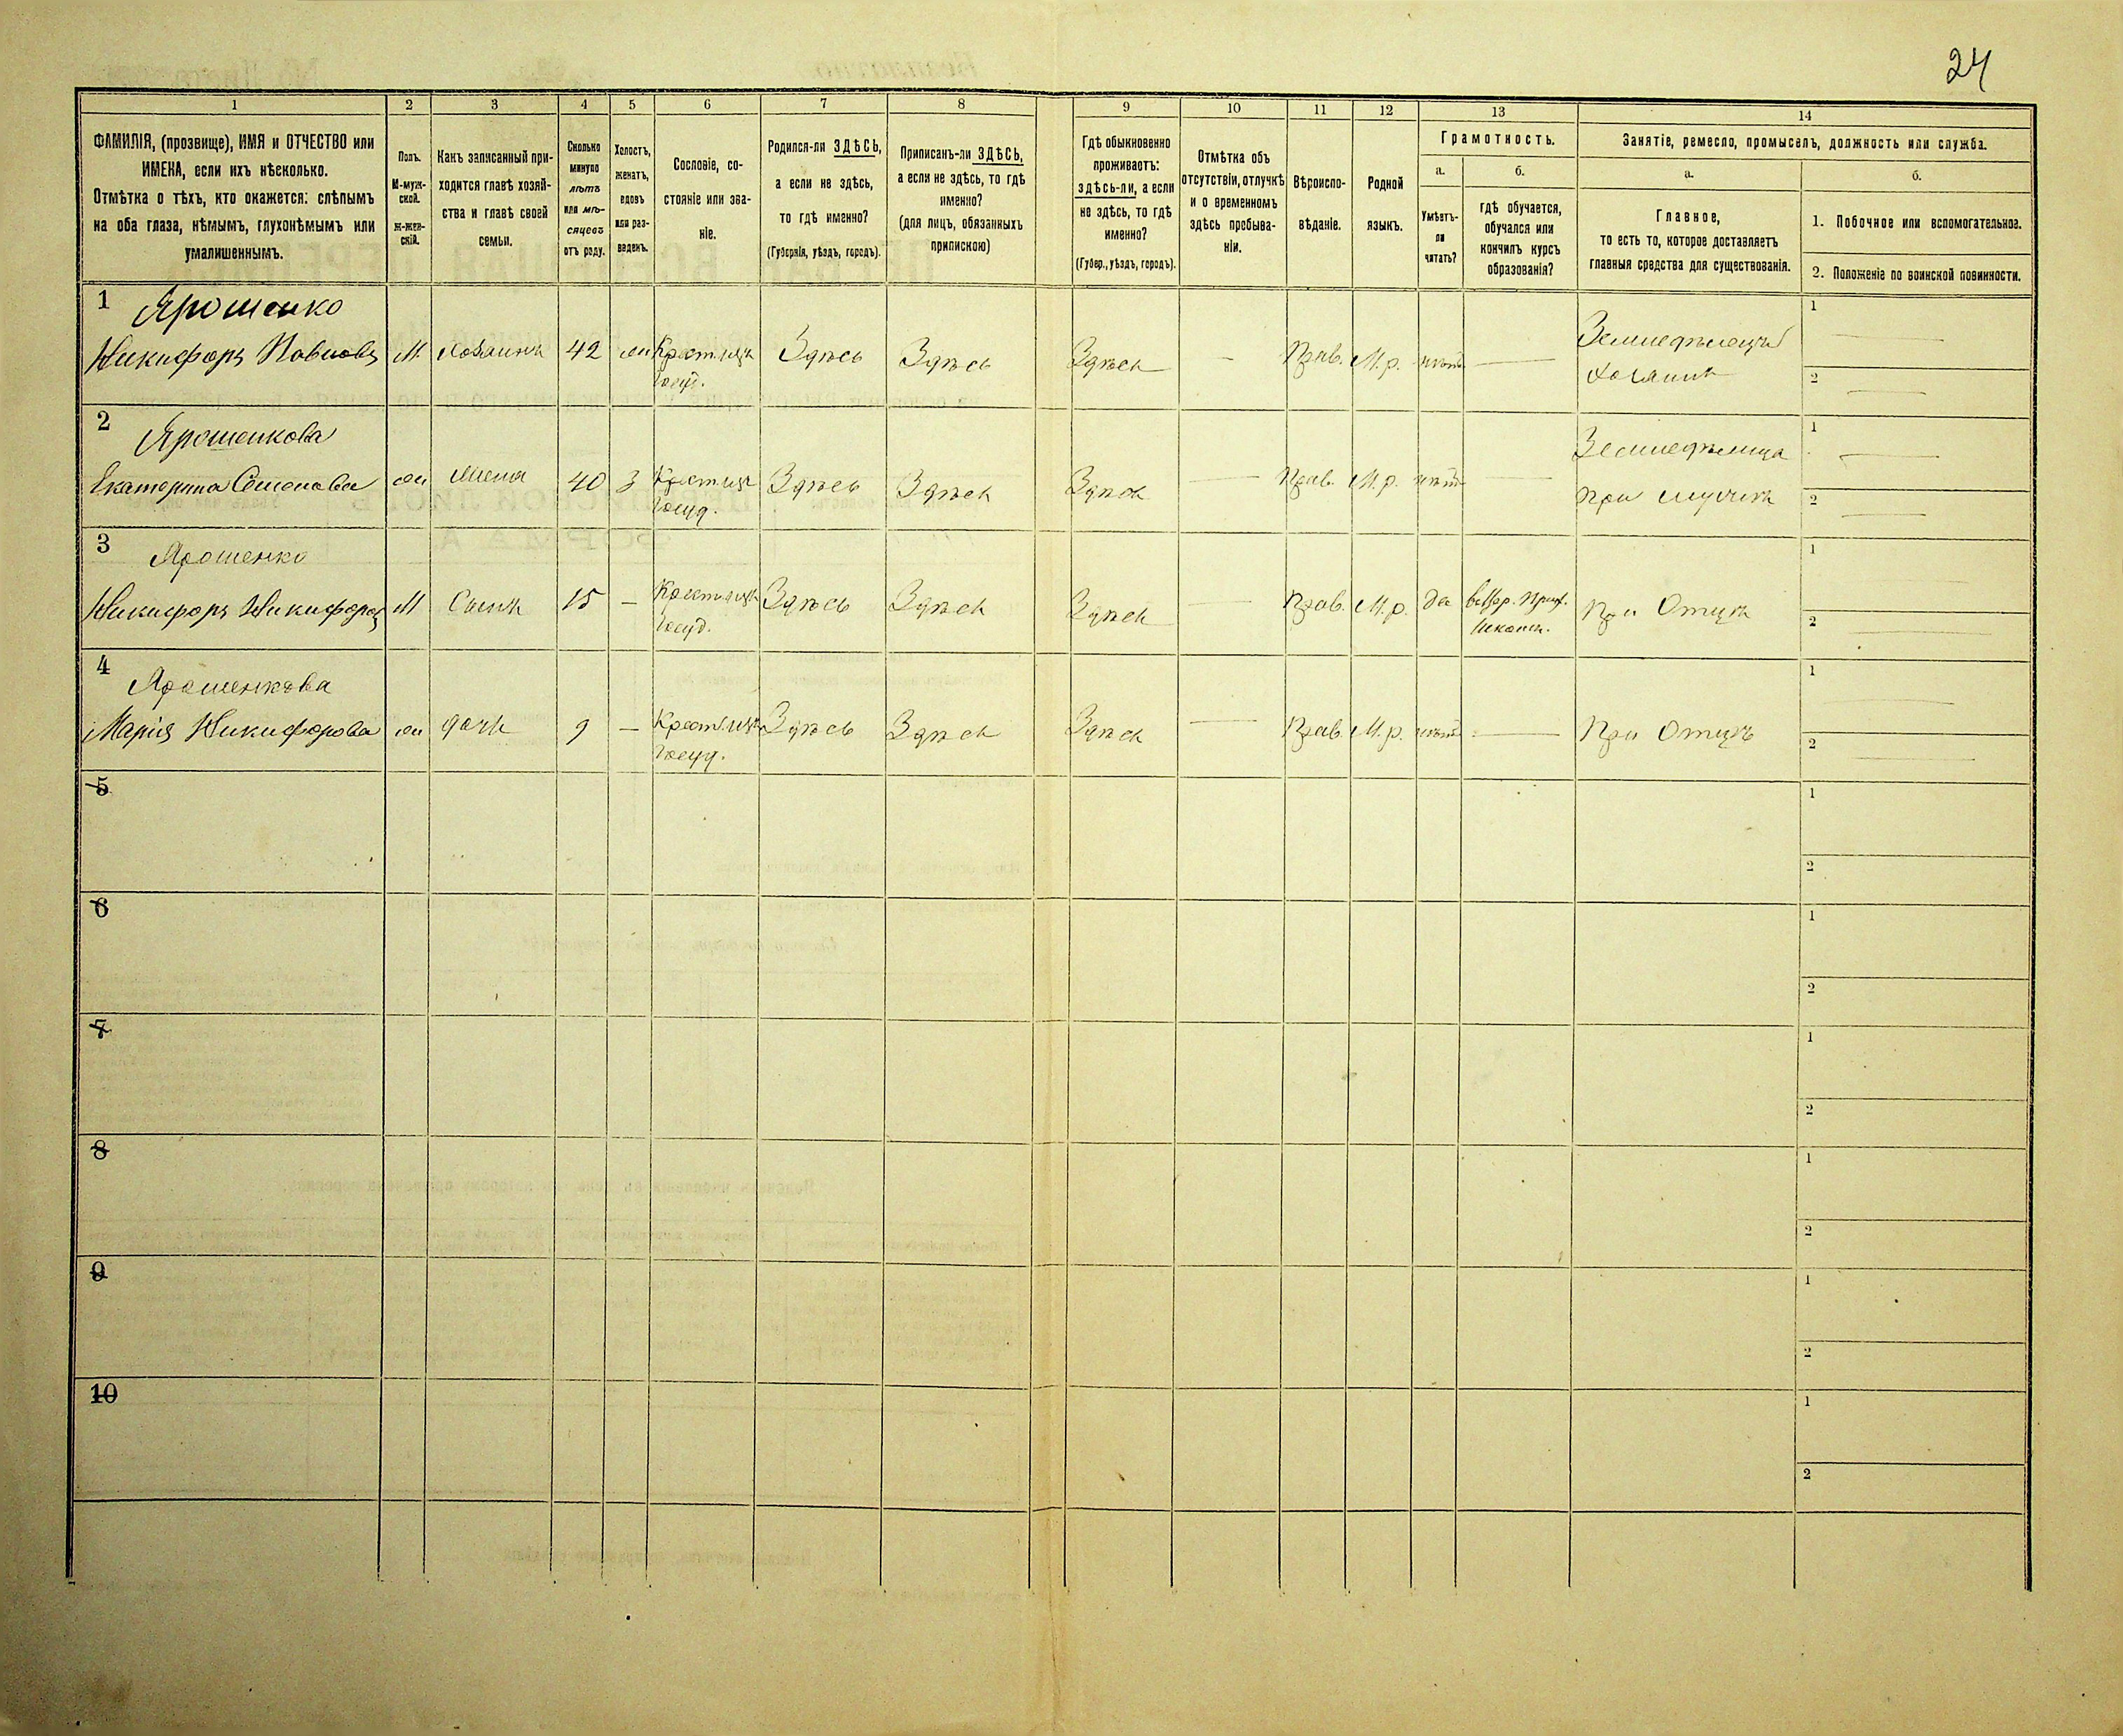 24
1 2 3 4 5 6 7 8 9 10 11 12 13 14
ФАМИЛІЯ, (прозвище), ИМЯ и ОТЧЕСТВО или
ИМЕНА, если ихъ нѣсколько.
Отмѣтка о тѣхъ, кто окажется: слѣпымъ
на оба глаза, нѣмымъ, глухонѣмымъ или
умалишеннымъ.
Полъ.
М-муж-
ской.
ж-жен-
скій.
Какъ записанный при-
ходится главѣ хозяй-
ства и главѣ своей
семьи.
Сколько
минуло
лѣтъ
или мѣ-
сяцевъ
отъ роду.
Холостъ,
женатъ,
вдовъ
или раз-
веденъ.
Сословіе, со-
стояніе или зва-
ніе.
Родился-ли ЗДѢСЬ,
а если не здѣсь,
то гдѣ именно?
(Губернія, уѣздъ, городъ).
Приписанъ-ли ЗДѢСЬ,
а если не здѣсь, то гдѣ
именно?
(для лицъ, обязанныхъ
припискою)
Гдѣ обыкновенно
проживаетъ:
здѣсь-ли, а если
не здѣсь, то гдѣ
именно?
(Губер., уѣздъ, городъ).
Отмѣтка объ
отсутствіи, отлучкѣ
и о временномъ
здѣсь пребыва-
ніи.
Вѣроиспо-
вѣданіе.
Родной
языкъ.
Грамотность.
а.
Умѣетъ-
ли
читать?
б.
гдѣ обучается,
обучался или
кончилъ курсъ
образованія?
Занятіе, ремесло, промыселъ, должность или служба.
а.
Главное,
то есть то, которое доставляетъ
главныя средства для существованія.
б.
1. Побочное или вспомогательное.
2. Положеніе по воинской повинности.
1 Ярошенко
Никифоръ Павловъ М. хозяинъ 42 Крест. изъ Здѣсь Здѣсь Здѣсь — Прав. М.р. нѣтъ —
Госуд.
Земледѣлецъ
хозяинъ
1 —
2 —
2 Ярошенкова
Екатерина Семенова ж жена 40 З Крест. изъ Здѣсь Здѣсь Здѣсь — Прав. М.р. нѣтъ —
Госуд.
Земледѣлица
при мужѣ
1 —
2 —
3 Ярошенко
Никифоръ Никифоровъ М Сынъ 15 — Крест. изъ Здѣсь Здѣсь Здѣсь — Прав. М.р. да
Госуд.
При Отцѣ
1 —
2 —
4 Ярошенкова
Марія Никифорова ж дочь 9 — Крест. изъ Здѣсь Здѣсь Здѣсь — Прав. М.р. нѣтъ —
Госуд.
При Отцѣ
1 —
2 —
5
1
2
6
1
2
7
1
2
8
1
2
9
1
2
10
1
2